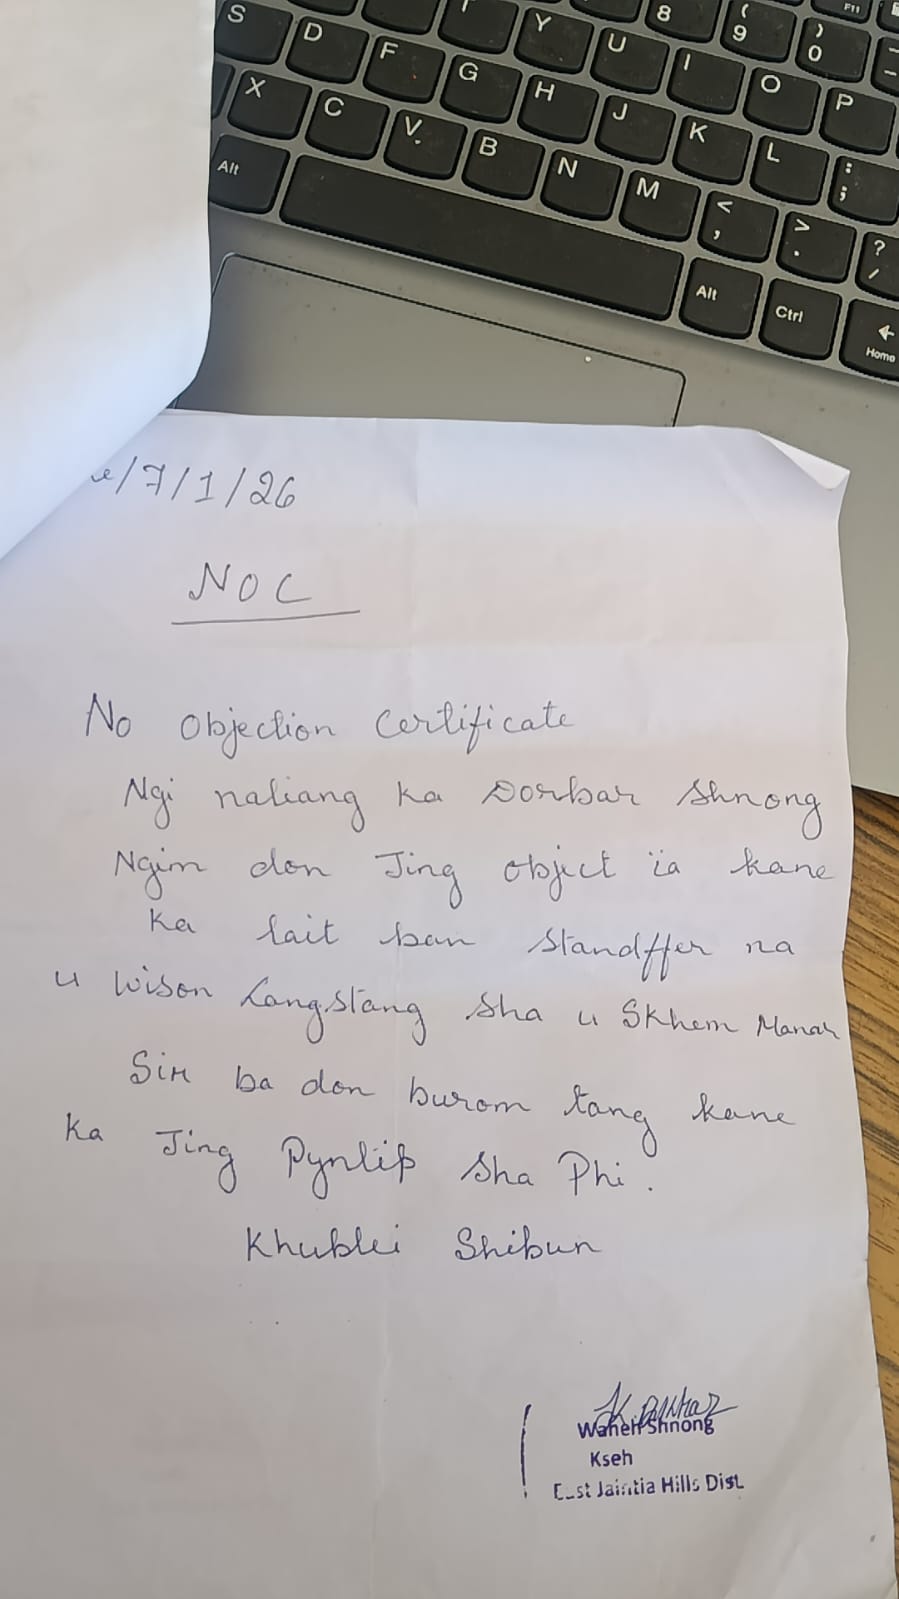 S D F G H J K L
Y U I O P
8 ( 9 ) 0
F11
X C V B N M < , > . ? /
: ;
Alt Alt Ctrl Home
e/7/1/26
NOC
No Objection Certificate
Ngi naliang ka Dorbar Shnong
Ngim don Jing object ïa kane
ka lait ban standffer na
u Wison Langstang sha u Skhem Manar
Sir ba don burom tang kane
ka Jing Pyntip sha Phi.
Khublei Shibun
Waheh Shnong
Kseh
East Jaintia Hills Dist.